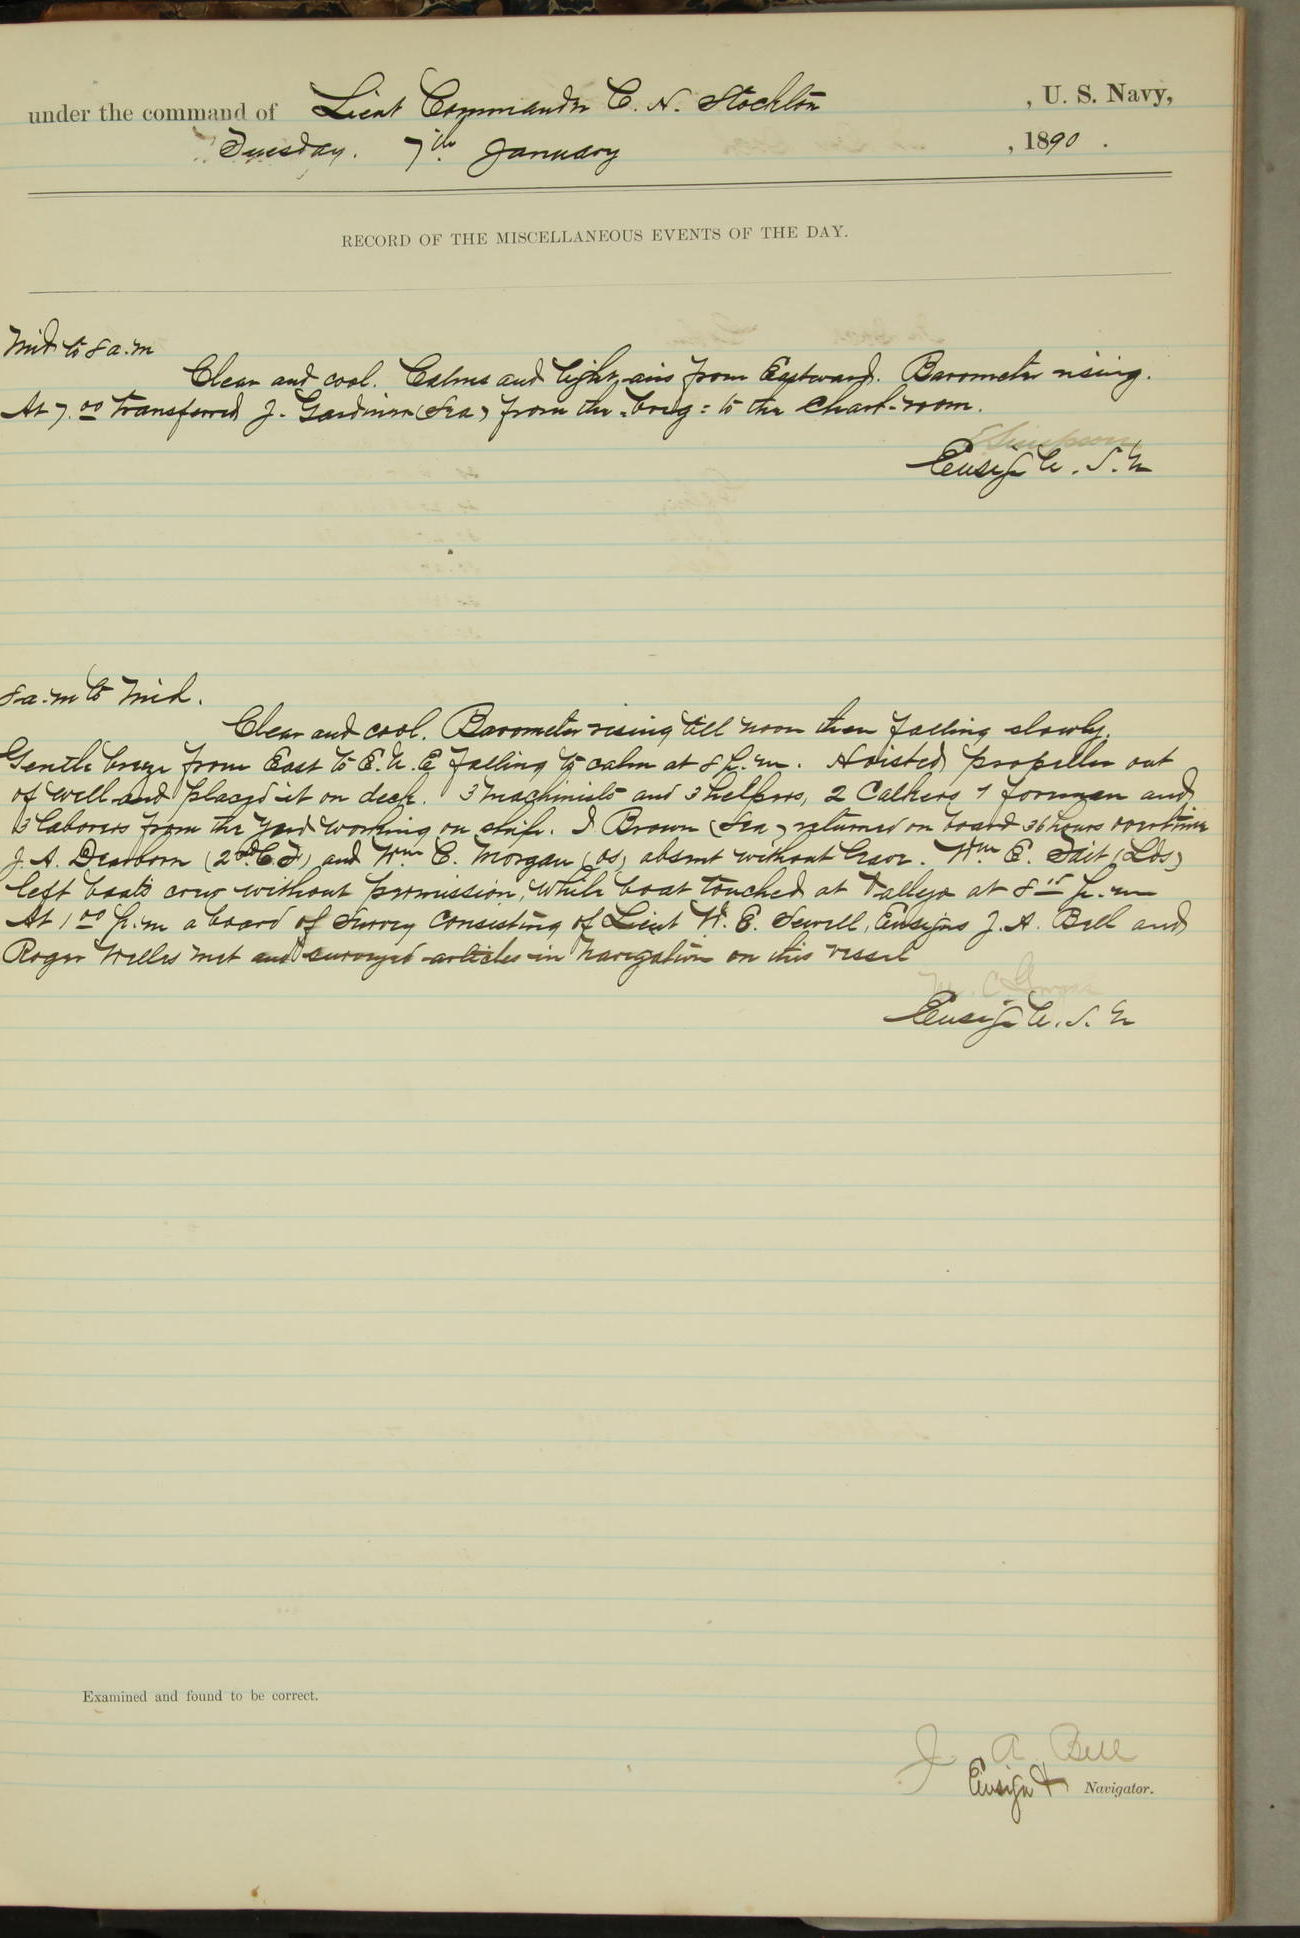 under the command of Lieut Commander C. H. Stockton , U. S. Navy,
Tuesday. 7th January , 1890 .
RECORD OF THE MISCELLANEOUS EVENTS OF THE DAY.
Mid to 8 a.m
Clear and cool. Calms and light airs from Eastward. Barometer rising.
At 7.00 transferred J. Gardiner (Sea) from the "brig" to the chart-room.
E Simpson
Ensign U. S. N
8 a.m to Mid.
Clear and cool. Barometer rising till noon then falling slowly.
Gentle breeze from East to E.N.E falling to calm at 8 p.m. Hoisted propeller out
of well and placed it on deck. 3 machinists and 3 helpers, 2 Calkers 1 foreman and
13 laborers from the yard working on ship. I Brown (Sea) returned on board 36 hours overtime
J. A. Dearborn (2nd C F) and Wm C. Morgan (OS) absent without leave. Wm E. Tait (Lds)
left boat's crew without permission, while boat touched at Vallejo at 8 p.m
At 1 00 p.m a board of survey consisting of Lieut W. E. Sewell, Ensigns J. A. Bell and
Roger Welles met and surveyed articles in Navigation on this vessel
Ensign U. S. N
Examined and found to be correct.
J. A. Bell
Ensign & Navigator.